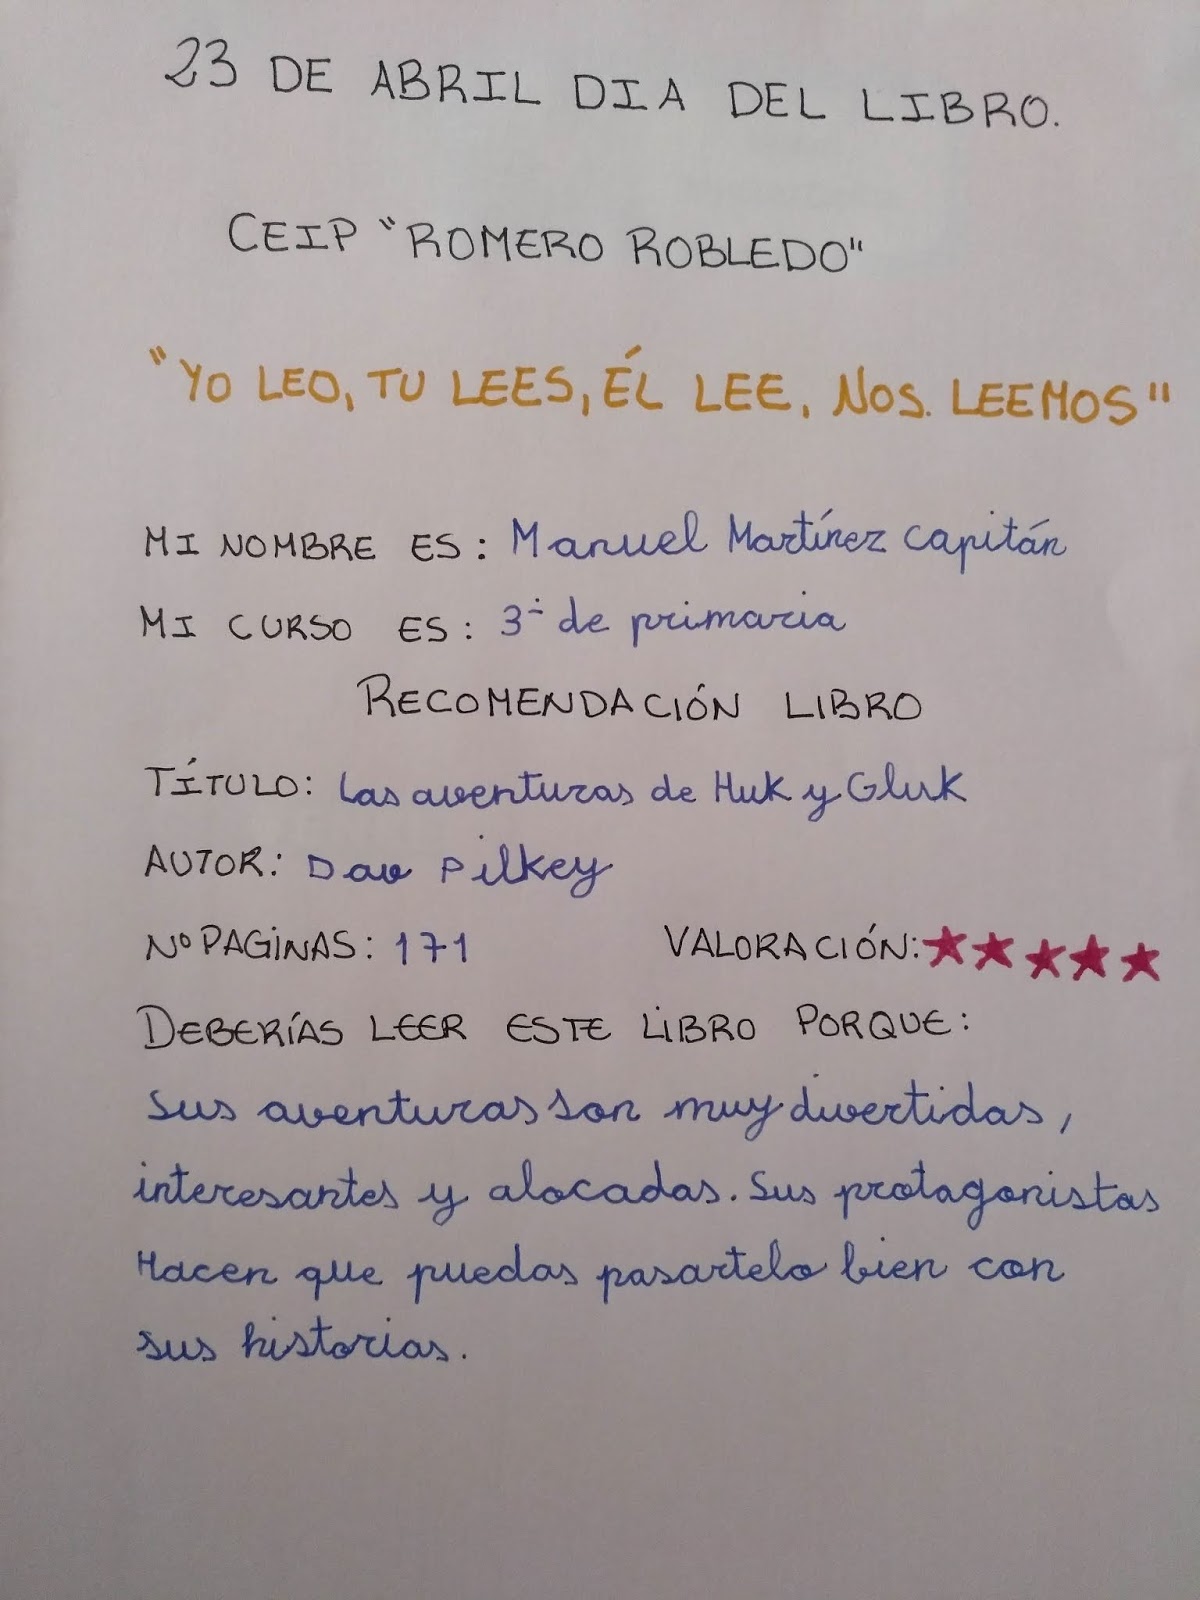 23 DE ABRIL DIA DEL LIBRO.
CEIP "ROMERO ROBLEDO"
"YO LEO, TU LEES, ÉL LEE, NOS. LEEMOS"
MI NOMBRE ES: Manuel Martínez Capitán
MI CURSO ES: 3º de primaria
RECOMENDACIÓN LIBRO
TÍTULO: Las aventuras de Huk y Gluk
AUTOR: Dav Pilkey
Nº PAGINAS: 171 VALORACIÓN: ★★★★★
DEBERÍAS LEER ESTE LIBRO PORQUE:
Sus aventuras son muy divertidas,
interesantes y alocadas. Sus protagonistas
Hacen que puedas pasartelo bien con
sus historias.